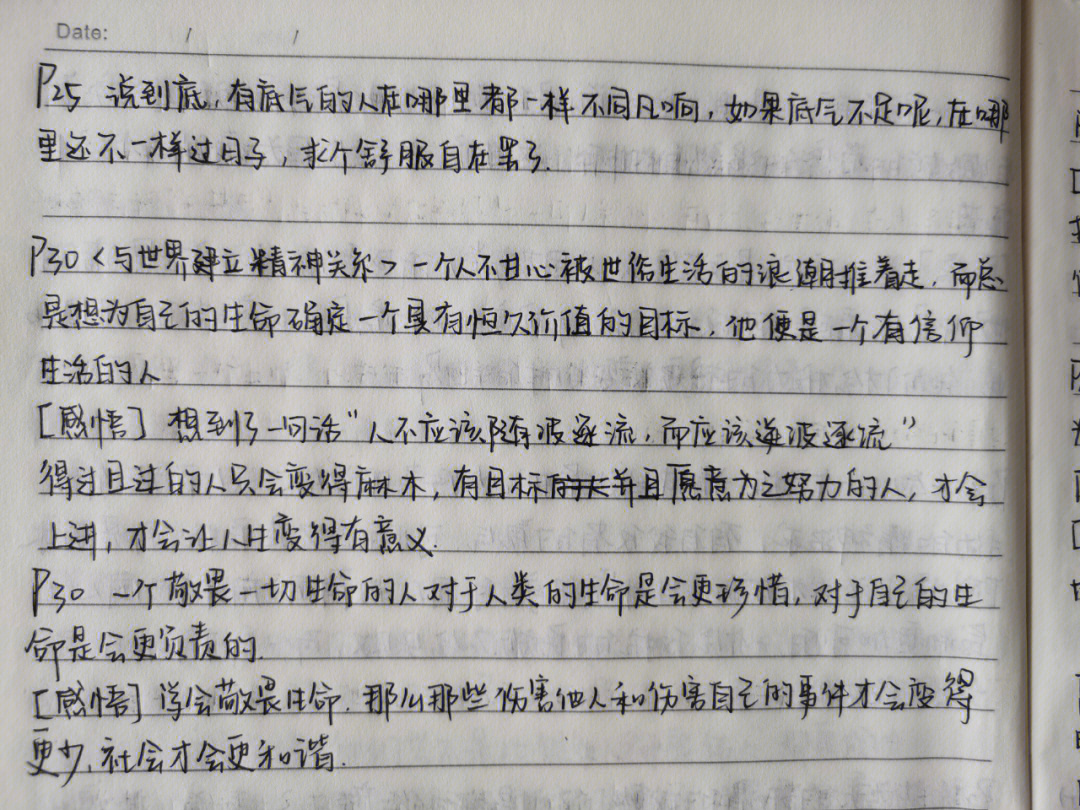 Date: / /
P25 说到底,有底气的人在哪里都一样不同凡响,如果底气不足呢,在哪
里还不一样过日子,求个舒服自在罢了.
P30<与世界建立精神关系>一个人不甘心被世俗生活的浪潮推着走,而总
是想为自己的生命确定一个具有恒久价值的目标,他便是一个有信仰
生活的人
[感悟] 想到了一句话"人不应该随波逐流,而应该逐波逐流"
得过且过的人只会变得麻木,有目标并且愿意为之努力的人,才会
上进,才会让人生变得有意义.
P30 一个敬畏一切生命的人对于人类的生命是会更珍惜,对于自己的生
命是会更负责的.
[感悟] 学会敬畏生命.那么那些伤害他人和伤害自己的事件才会变得
更少,社会才会更和谐.